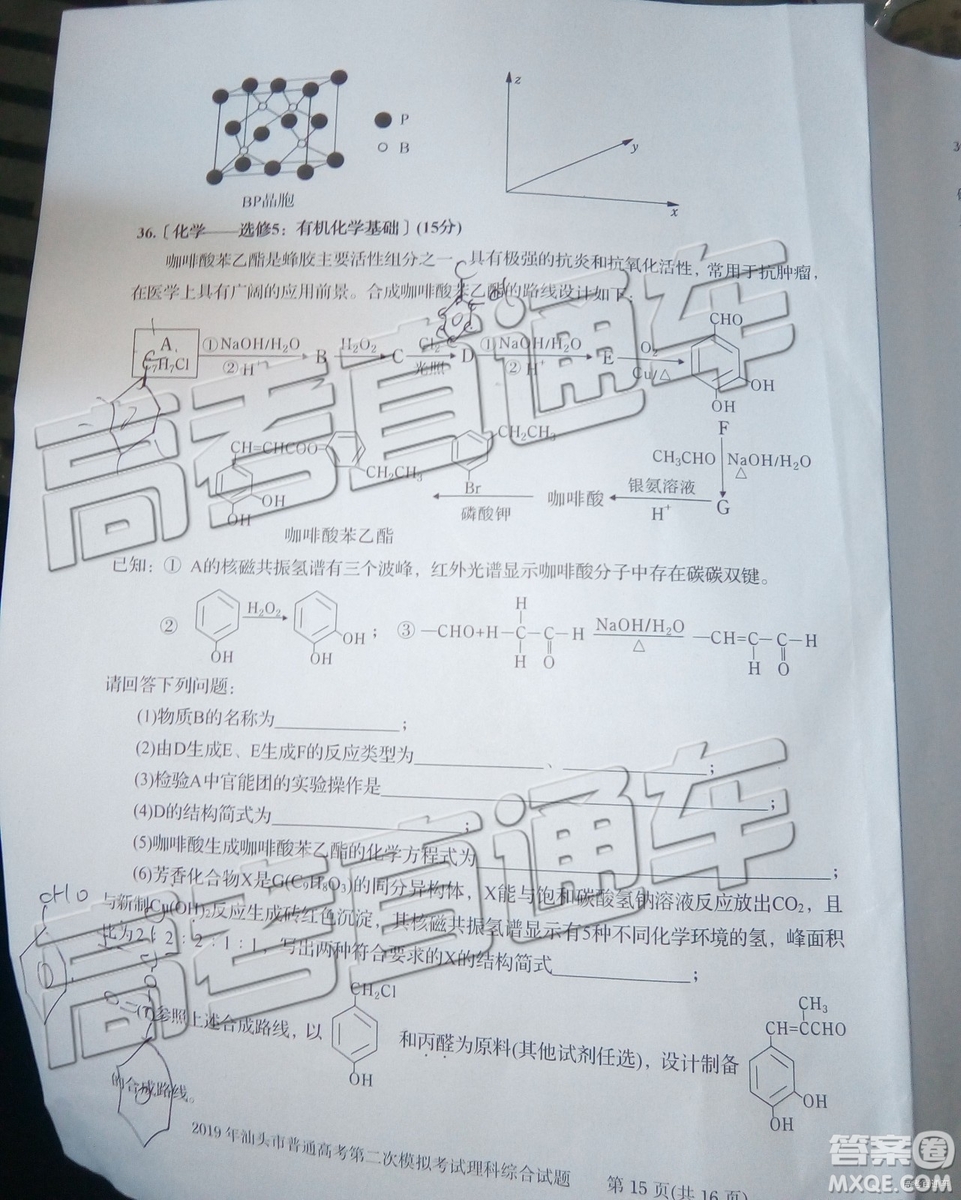 P
B
BP晶胞
z
y
x
36.[化学——选修5：有机化学基础](15分)
咖啡酸苯乙酯是蜂胶主要活性组分之一，具有极强的抗炎和抗氧化活性，常用于抗肿瘤，
在医学上具有广阔的应用前景。合成咖啡酸苯乙酯的路线设计如下：
A
C₇H₇Cl
①NaOH/H₂O
②H⁺
B
H₂O₂
C
Cl₂
光照
D
①NaOH/H₂O
②H⁺
E
O₂
Cu/△
CHO
OH
OH
F
CH₃CHO
NaOH/H₂O
△
G
银氨溶液
H⁺
咖啡酸
CH₂CH₃
Br
磷酸钾
CH=CHCOO
CH₂CH₃
OH
OH
咖啡酸苯乙酯
已知：① A的核磁共振氢谱有三个波峰，红外光谱显示咖啡酸分子中存在碳碳双键。
② OH H₂O₂ OH OH； ③ —CHO+H—C—C—H H H O NaOH/H₂O △ —CH=C—C—H H O
请回答下列问题：
(1)物质B的名称为；
(2)由D生成E、E生成F的反应类型为、；
(3)检验A中官能团的实验操作是；
(4)D的结构简式为；
(5)咖啡酸生成咖啡酸苯乙酯的化学方程式为；
(6)芳香化合物X是G(C₉H₈O₃)的同分异构体，X能与饱和碳酸氢钠溶液反应放出CO₂，且
与新制Cu(OH)₂反应生成砖红色沉淀，其核磁共振氢谱显示有5种不同化学环境的氢，峰面积
比为2：2：2：1：1，写出两种符合要求的X的结构简式；
(7)参照上述合成路线，以 CH₂Cl OH 和丙醛为原料(其他试剂任选)，设计制备 CH₃ CH=CCHO OH OH
的合成路线。
2019年汕头市普通高考第二次模拟考试理科综合试题 第15页(共16页)
高考直通车
高考直通车
答案圈
MXQE.COM